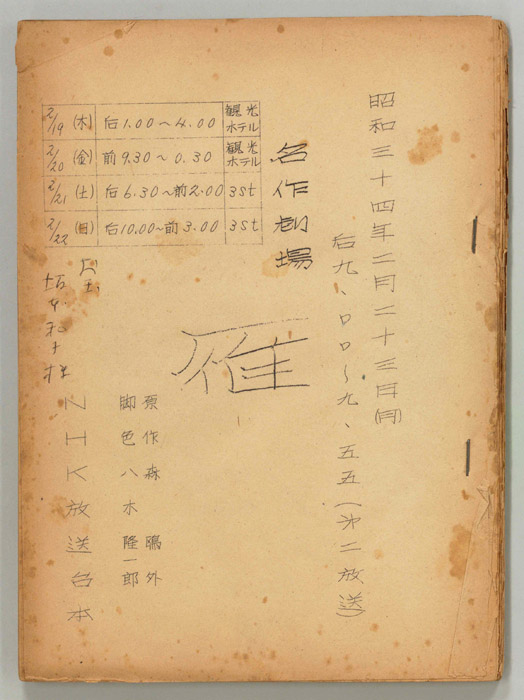 昭和三十四年二月二十三日(月)
后九、〇〇~九、五五(第二放送)
名作劇場
雁
原作 森 鴎外
脚色 八木隆一郎
NHK放送台本
2/19 (木) 后1.00~4.00 観光ホテル
2/20 (金) 前9.30~0.30 観光ホテル
2/21 (土) 后6.30~前2.00 3St
2/22 (日) 后10.00~前3.00 3St